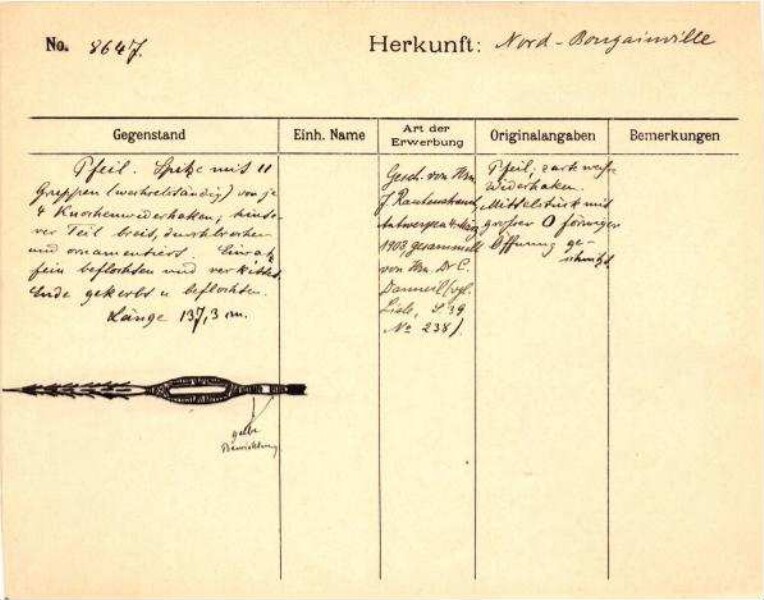 No. 8647.
Herkunft: Nord-Bougainville
Gegenstand
Einh. Name
Art der
Erwerbung
Originalangaben
Bemerkungen
Pfeil. Spitze mit 11
Gruppen (wechselständig) von je
4 Knochenwiderhaken; hinte-
rer Teil breit, durchbrochen
und ornamentiert. Einsatz
fein beflochten und verkittet.
Ende gekerbt u beflochten.
Länge 137,3 cm.
Gesch. von Hrn.
J. Rautenstrauch
Antwerpen 4. März
1903, gesammelt
von Hrn. Dr C.
Danneil (vgl.
Liste, S. 39
No 238).
Pfeil,
Widerhaken.
Mittelstück mit
grosser O förmiger
Öffnung ge-
schnitzt
gelbe
Bewicklung